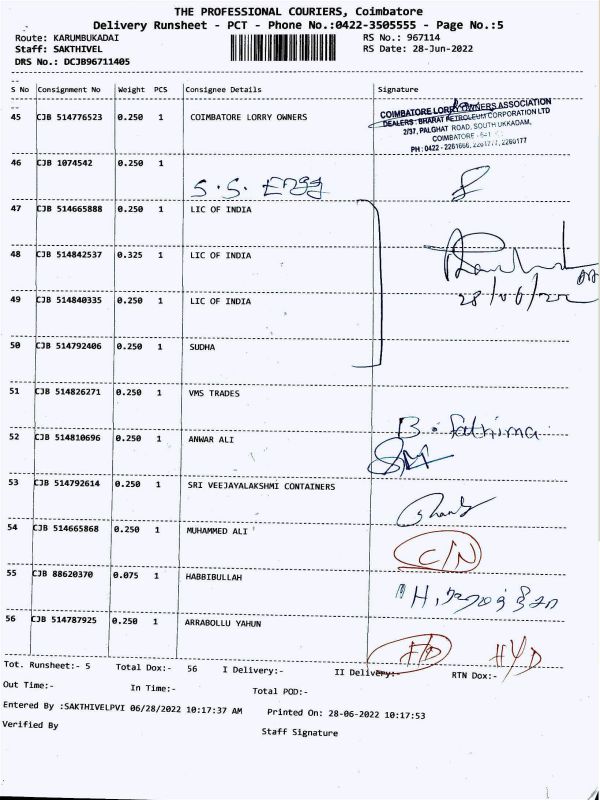 THE PROFESSIONAL COURIERS, Coimbatore
Delivery Runsheet - PCT - Phone No.:0422-3505555 - Page No.:5
Route: KARUMBUKADAI RS No.: 967114
Staff: SAKTHIVEL RS Date: 28-Jun-2022
DRS No.: DCJB96711405
S No Consignment No Weight PCS Consignee Details Signature
45 CJB 514776523 0.250 1 COIMBATORE LORRY OWNERS
COIMBATORE LORRY OWNERS ASSOCIATION
DEALERS: BHARAT PETROLEUM CORPORATION LTD
2/37, PALGHAT ROAD, SOUTH UKKADAM,
COIMBATORE
PH: 0422 - 2261666, 2261777, 2260177
46 CJB 1074542 0.250 1
S.S. Engg
47 CJB 514665888 0.250 1 LIC OF INDIA
48 CJB 514842537 0.325 1 LIC OF INDIA
28/06/22
49 CJB 514840335 0.250 1 LIC OF INDIA
50 CJB 514792406 0.250 1 SUDHA
51 CJB 514826271 0.250 1 VMS TRADES
B. Fathima
52 CJB 514810696 0.250 1 ANWAR ALI
53 CJB 514792614 0.250 1 SRI VEEJAYALAKSHMI CONTAINERS
54 CJB 514665868 0.250 1 MUHAMMED ALI
C/N
55 CJB 88620370 0.075 1 HABBIBULLAH
56 CJB 514787925 0.250 1 ARRABOLLU YAHUN
HYD
Tot. Runsheet:- 5 Total Dox:- 56 I Delivery:- II Delivery:- RTN Dox:-
Out Time:- In Time:- Total POD:-
Entered By :SAKTHIVELPVI 06/28/2022 10:17:37 AM Printed On: 28-06-2022 10:17:53
Verified By Staff Signature